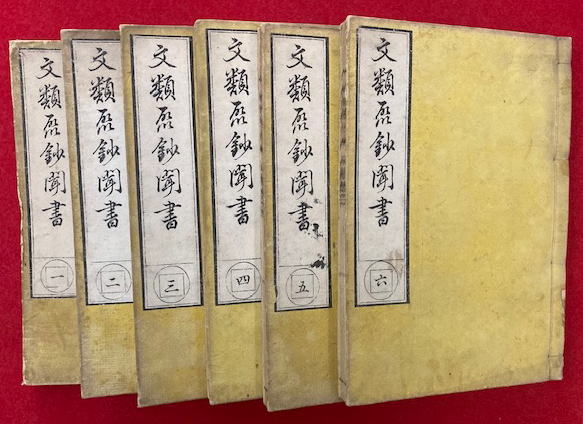 文類聚鈔聞書
一
文類聚鈔聞書
二
文類聚鈔聞書
三
文類聚鈔聞書
四
文類聚鈔聞書
五
文類聚鈔聞書
六